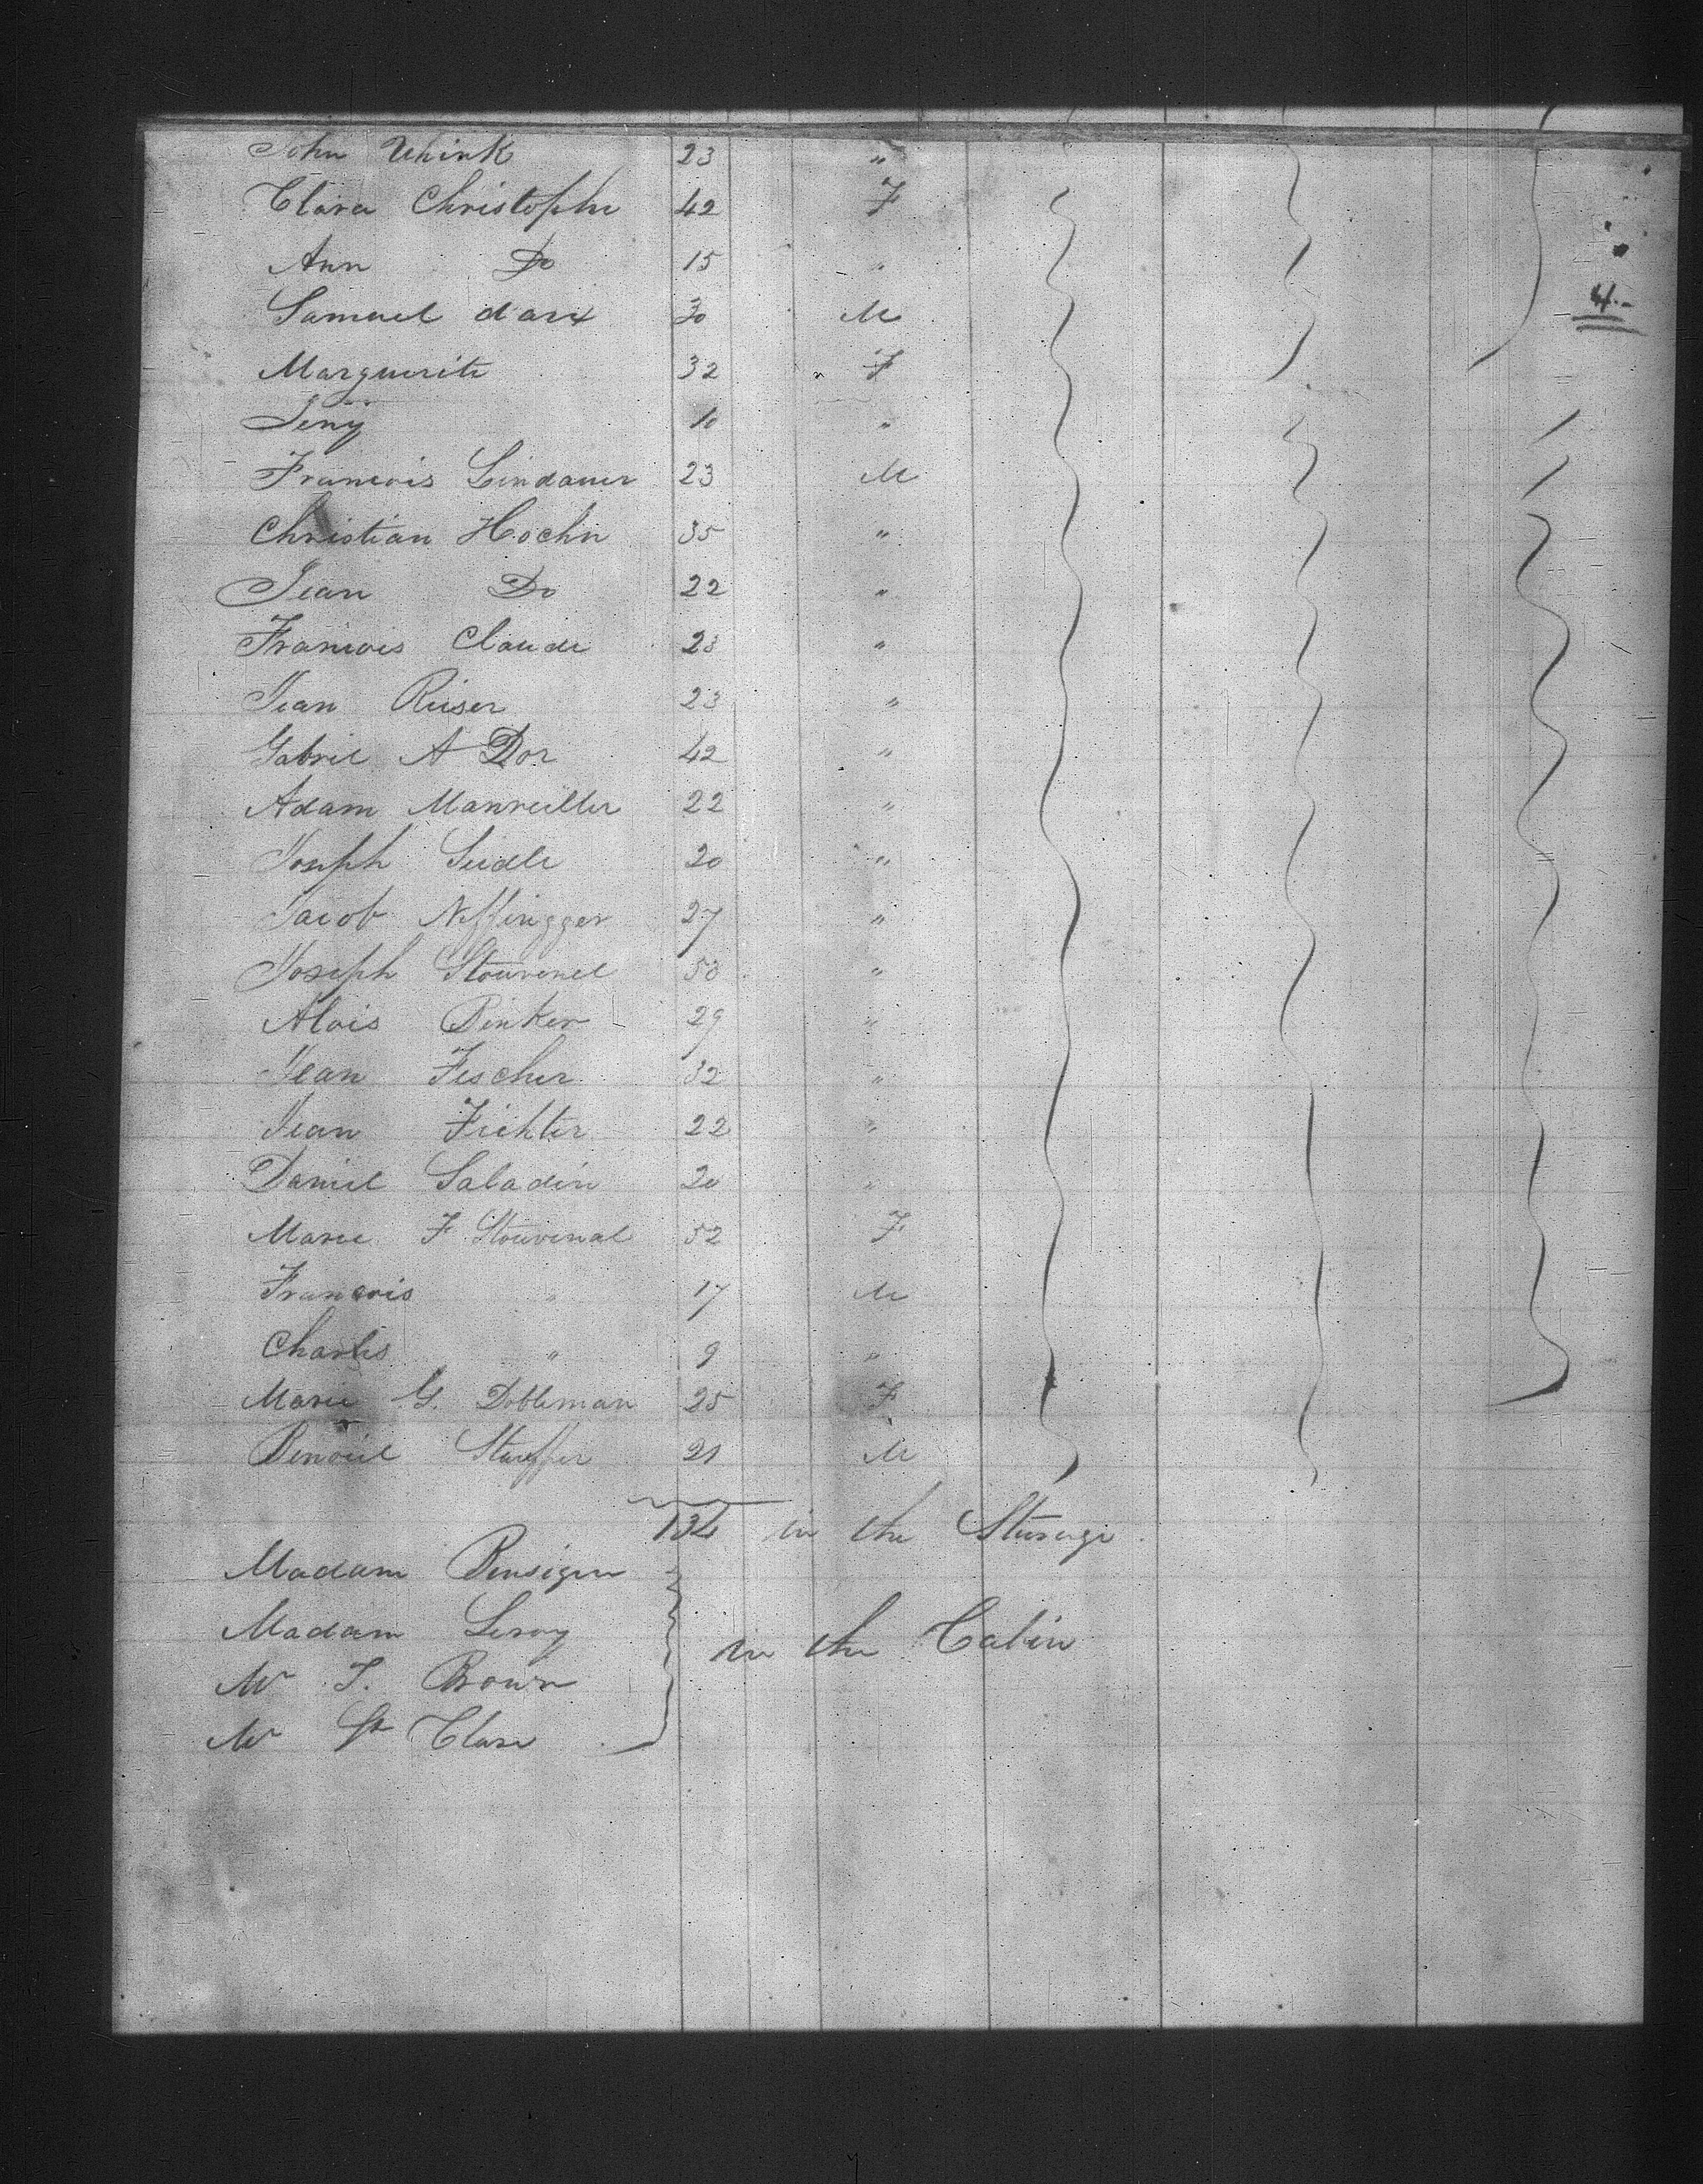 John Uhink 23 "
Clara Christophe 42 F
Ann Do 15 "
Samuel d'arx 30 M
4.-
Marguerite 32 F
Jeny 10 "
Francois Lindauer 23 M
Christian Hoehn 35 "
Jean Do 22 "
Francois Claude 23 "
Jean Reiser 23 "
Gabriel A Dor 42 "
Adam Manveiller 22 "
Joseph Seidle 20 "
Jacob Neffingger 27 "
Joseph Stouvenel 50 "
Alois Binker 29 "
Jean Fischer 32 "
Jean Fichter 22 "
Daniel Saladin 20 "
Marie F Stouvenal 52 F
Francois " 17 M
Charles " 9 "
Marie G. Dobleman 25 F
Stauffer 21 M
134 in the Steerage
Madam
Madam Leroy
in the Cabin
Mr J. Brown
Mr St Clare